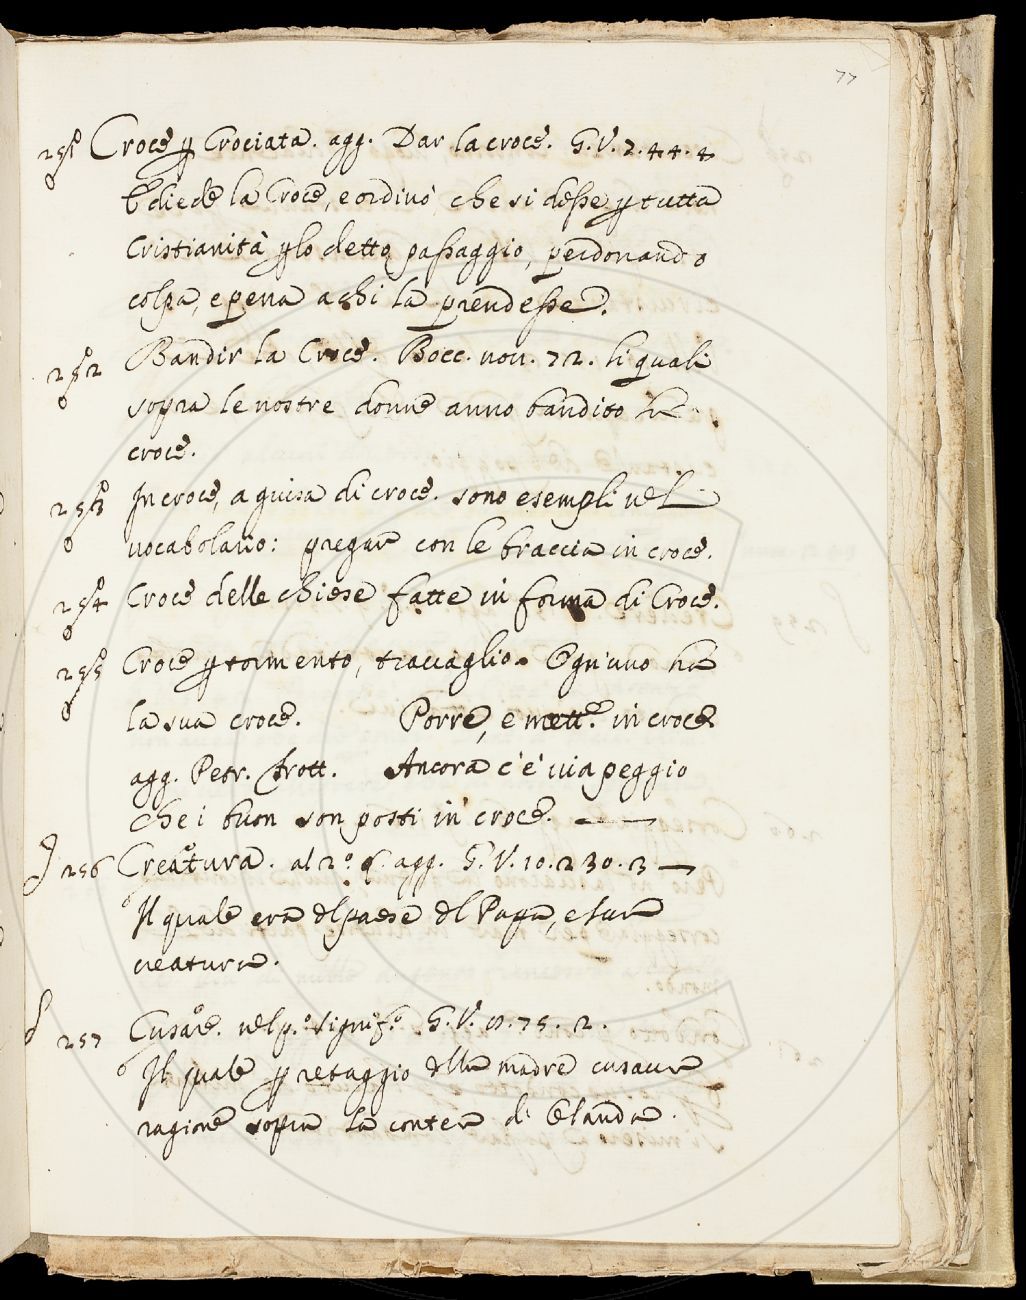 77
251 Croce ꝑ Crociata. agg. Dar la croce. G.V. 7. 44. 4
E diede la Croce, e ordinò che si desse ꝑ tutta
Cristianità ꝑ lo detto passaggio, perdonando
colpa, e pena a chi la prendesse.
252 Bandir la Croce. Bocc. nov. 72. li quali
sopra le nostre donne anno bandito la
croce.
253 In croce, a guisa di croce. sono esempli nel
vocabolario: pregar con le braccia in croce.
254 Croce delle chiese fatte in forma di Croce.
255 Croce ꝑ tormento, travaglio. Ogn'uno ha
la sua croce. Porre, e mett.e in croce
agg. Petr. Frott. Ancora c'è via peggio
che i buon son posti in croce.
256 Creatura. al 2.º § agg. G.V. 10. 230. 3
Il quale era del paese del Papa, e sua
creatura.
257 Cusare. nel p.º signif.º G.V. 11. 75. 2.
Il quale ꝑ retaggio della madre cusava
ragione sopra la contea di Elanda.